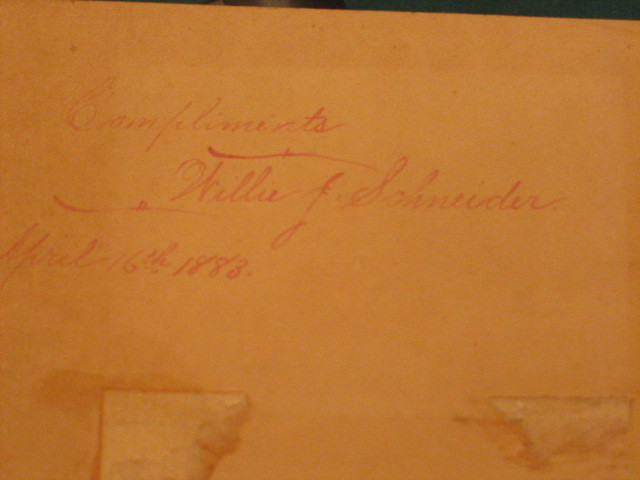 Compliments
Willie J. Schneider.
April 16th 1883.